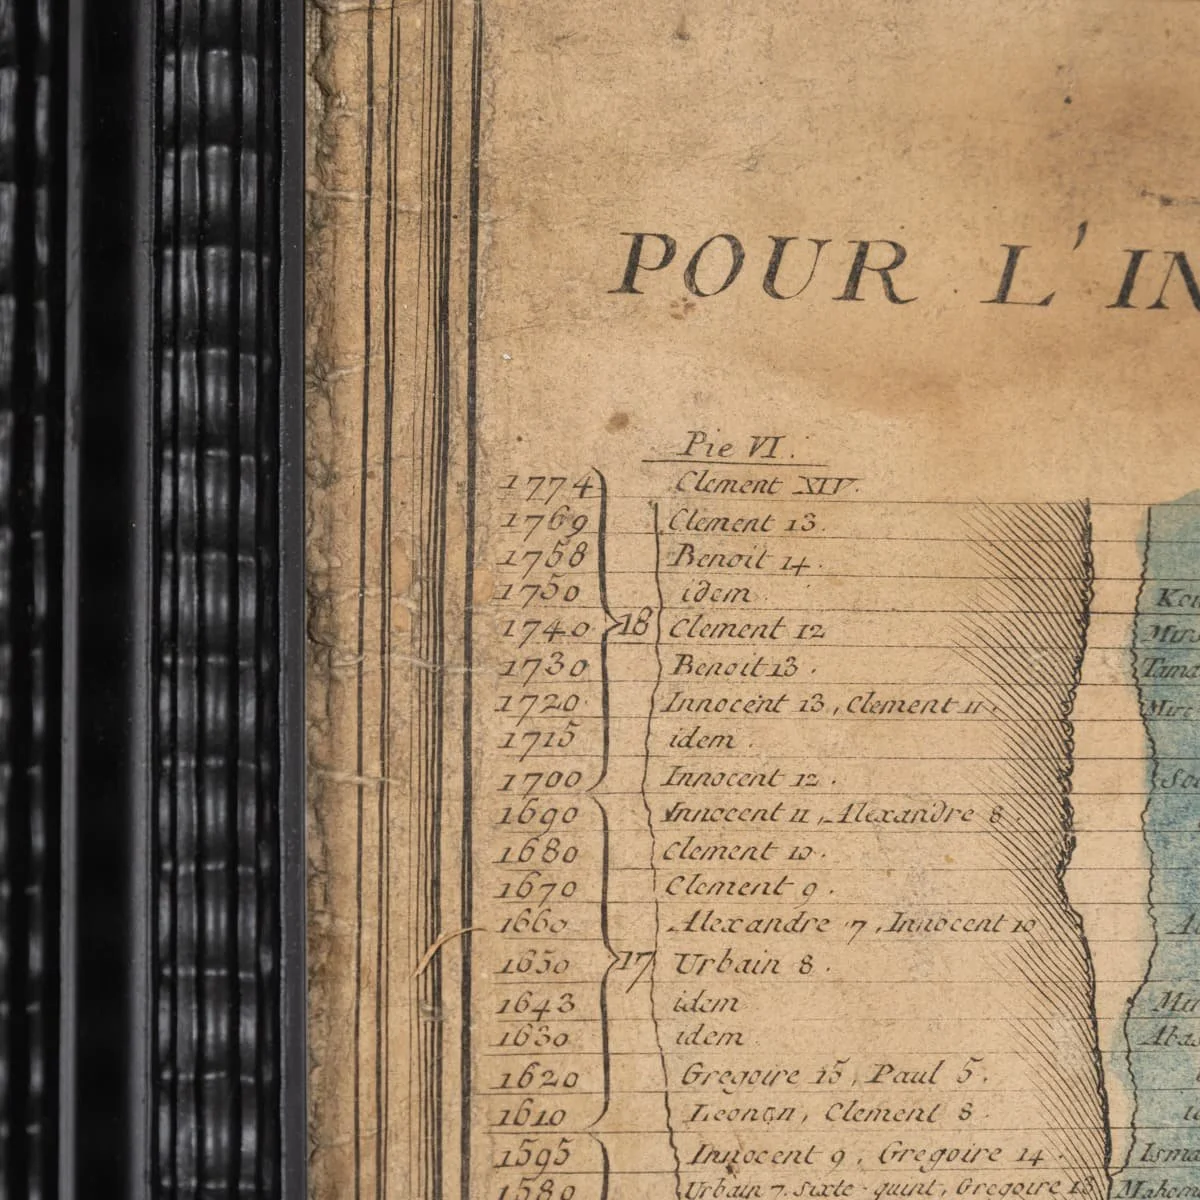 POUR L'IN
Pie VI.
1774 Clement XIV.
1769 Clement 13.
1758 Benoit 14.
1750 idem
18
1740 Clement 12
1730 Benoit 13.
1720 Innocent 13, Clement 11.
1715 idem.
1700 Innocent 12.
1690 Innocent 11, Alexandre 8.
1680 Clement 10.
1670 Clement 9.
1660 Alexandre 7, Innocent 10
17
1650 Urbain 8.
1643 idem
1630 idem
1620 Gregoire 15, Paul 5.
1610 Clement 8.
1595 Innocent 9, Gregoire 14.
1580 Urbain 7. Sixte-quint, Gregoire 13